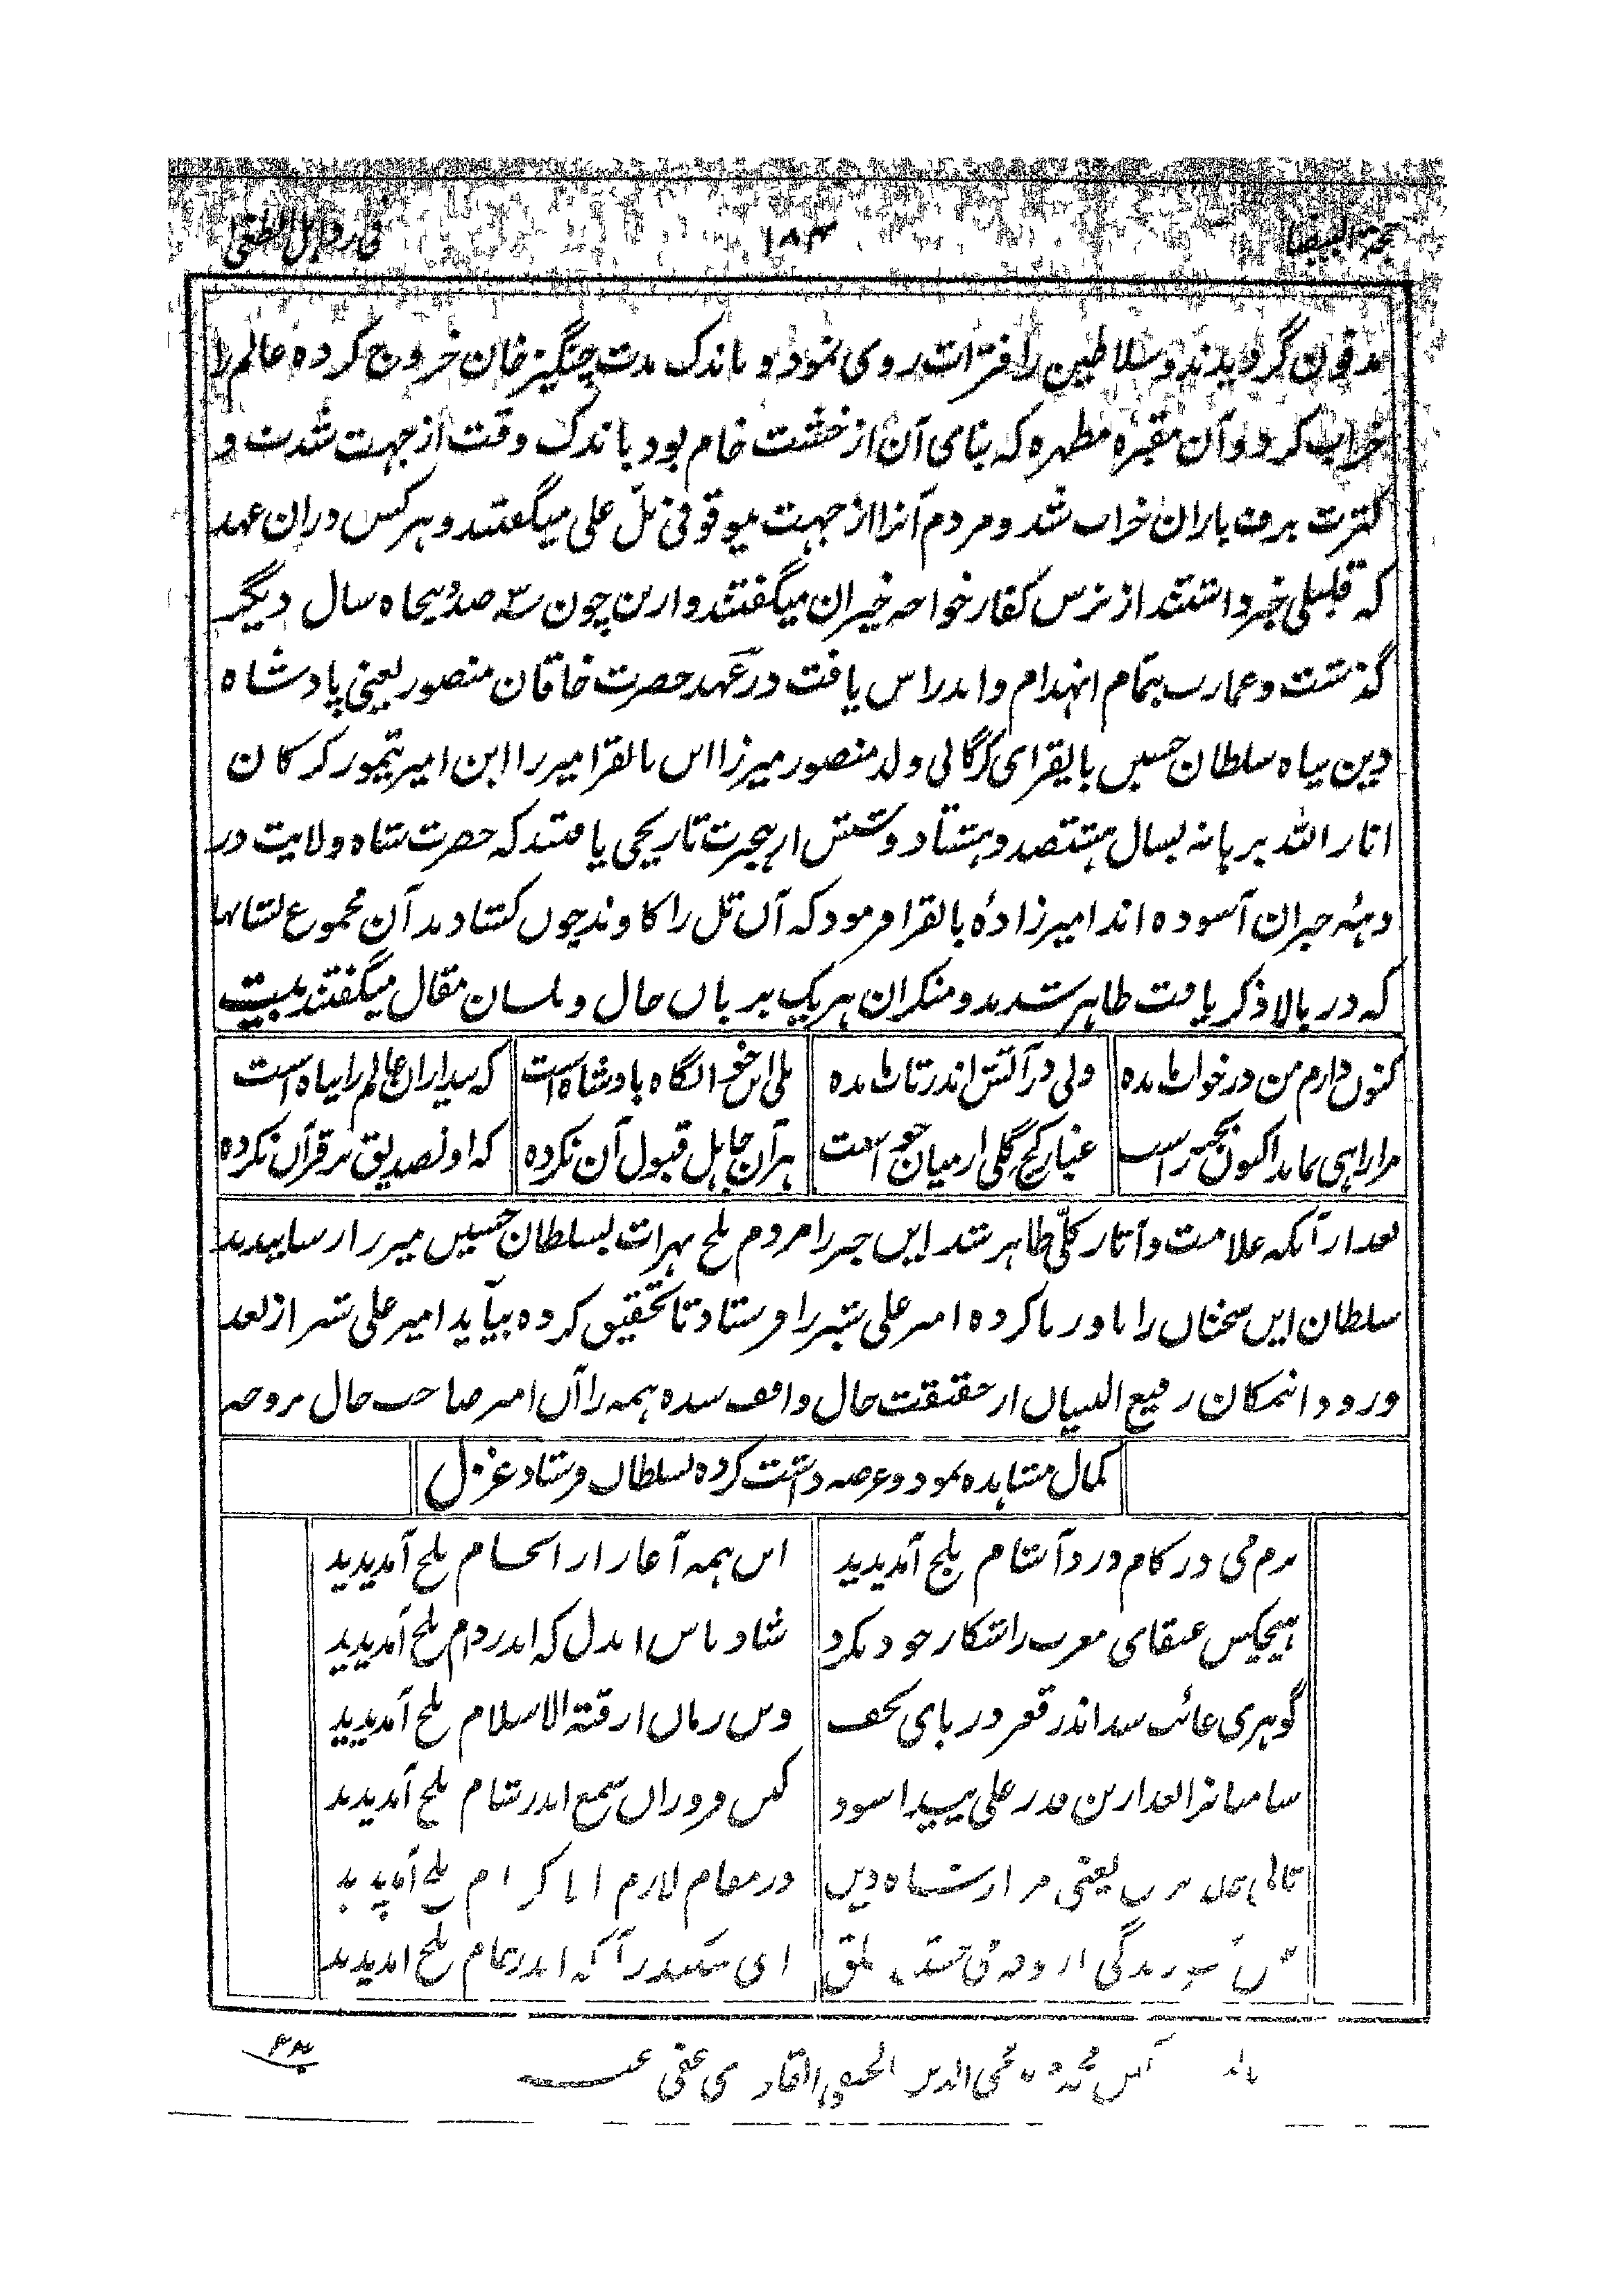 حجة البیضا ۱۸۳
مدفون گرویدند و سلاطین را فترات روی نمود و باندک مدت چنگیز خان خروج کرده عالم را
خراب کرد و آن مقبره مطهره که بنای آن از خشت خام بود باندک وقت از جهت شدت و
کثرت برف باران خراب شد و مردم آنرا از جهت میوقوفی تل علی میگفتند و هر کس دران عهد
که قلیلی خبر داشتند از ترس کفار خواجه خیران میگفتند و ازین چون سه صد و پنجاه سال دیگر
گذشت و عمارت بتمام انهدام و اندراس یافت در عهد حضرت خاقان منصور یعنی پادشاه
دین پناه سلطان حسین بایقرای گرگانی ولد منصور میرزا ابن بایقرا میرزا ابن امیر تیمور گرگان
انار الله برهانه بسال هشتصد و هشتاد و شش از هجرت تاریخی یافتند که حضرت شاه ولایت در
دهٔ خیران آسوده اند امیرزادهٔ بایقرا فرمود که آن تل را کاوند چون کشتادند آن مجموع نشانها
که در بالا ذکر یافت ظاهر شدند و منکران هر یک بر بان حال و بلسان مقال میگفتند بیت
کنون دارم من در خواب مانده ولی در آتش اندر تاب مانده بلی این خوابگاه پادشاه است که بیداران عالم را پناه است
مرا راهی نماند اکنون بجز راست غبار کج گلی از میان خواست هر آن جاهل قبول آن نکرده که او تصدیق بر قرآن نکرده
بعد از آنکه علامت و آثار کلی ظاهر شد این خبر را مردم بلخ بهرات بسلطان حسین میرزا رسانیدند
سلطان این سخنان را باور نا کرده امیر علی شیر را فرستاد تا تحقیق کرده بیاید امیر علی شیر از بعد
ورود انمکان رفیع البنیان از حقیقت حال واقف شده همه را آن امیر صاحب حال بر وجه
کمال مشاهده نمود و عرضه داشت کرده بسلطان فرستاد غزل
بزم می در کام درد آشام بلخ آمد پدید این همه آغاز از انجام بلخ آمد پدید
هیچکس عنقای مغرب را شکار خود نکرد شاد باش ایدل که اندر دام بلخ آمد پدید
گوهری غائب شد اندر قعر دریای نجف وین زمان از قبة الاسلام بلخ آمد پدید
علی پیدا نبود کس فروزان شمع اندر شام بلخ آمد پدید
یعنی مزار شاه دین در مقام لازم الاکرام بلخ آمد پدید
ای سکندر آنکه اندر جام بلخ آمد پدید
محی الدین الحنفی القادری عفی عنه